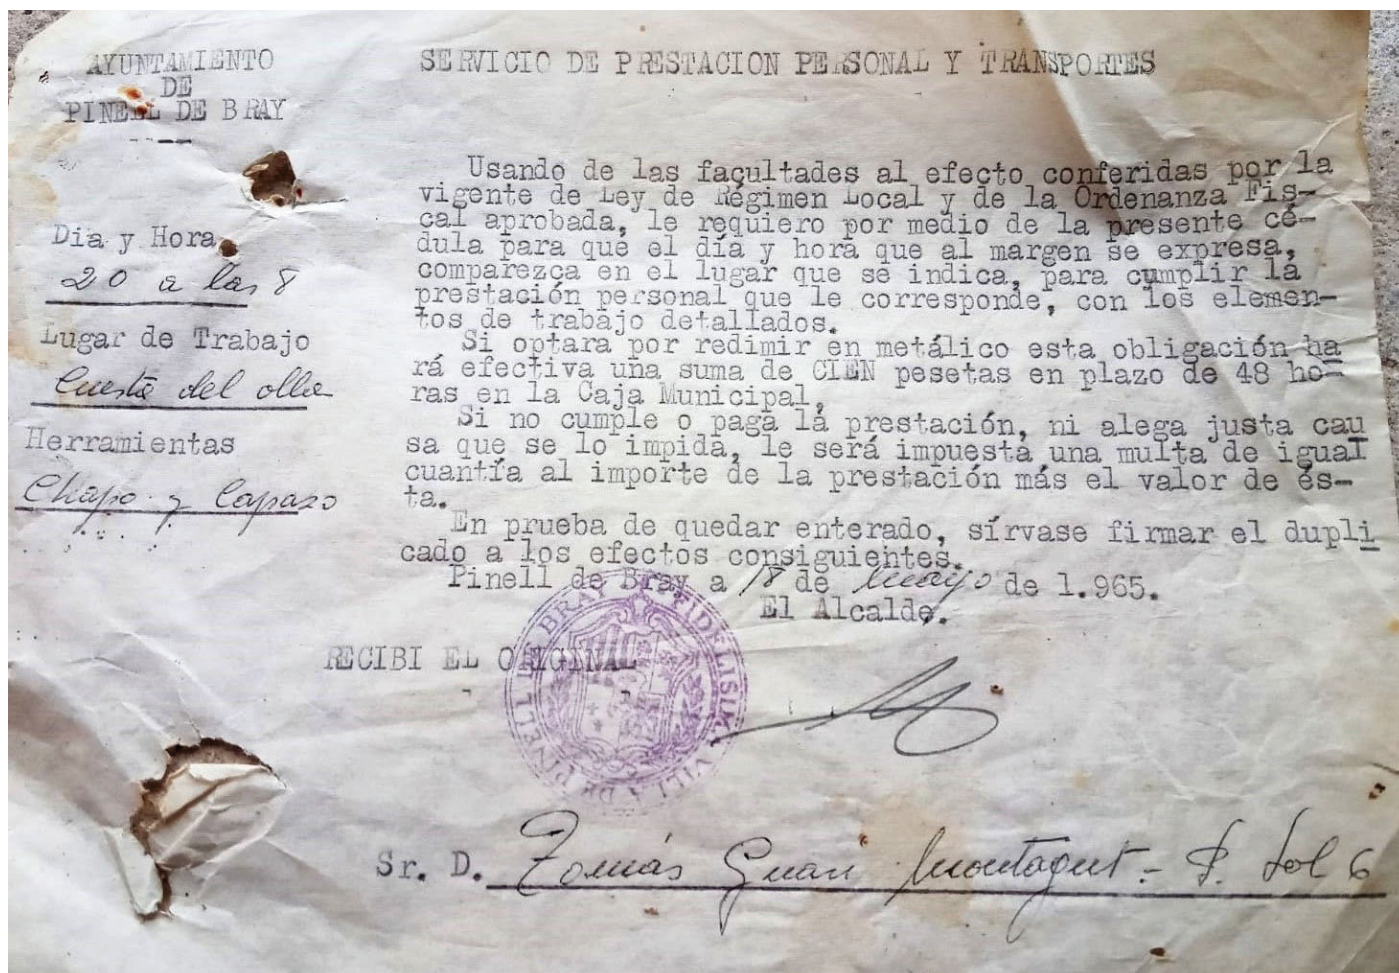 AYUNTAMIENTO
DE
PINELL DE BRAY
SERVICIO DE PRESTACION PERSONAL Y TRANSPORTES
Dia y Hora
20 a las 8
Lugar de Trabajo
Cuesta del olla
Herramientas
Chapo y Capazo
Usando de las facultades al efecto conferidas por la
vigente de Ley de Régimen Local y de la Ordenanza Fis-
cal aprobada, le requiero por medio de la presente cé-
dula para que el día y hora que al margen se expresa,
comparezca en el lugar que se indica, para cumplir la
prestación personal que le corresponde, con los elemen-
tos de trabajo detallados.
Si optara por redimir en metálico esta obligación ha
rá efectiva una suma de CIEN pesetas en plazo de 48 ho-
ras en la Caja Municipal,
Si no cumple o paga la prestación, ni alega justa cau
sa que se lo impida, le será impuesta una multa de igual
cuantía al importe de la prestación más el valor de és-
ta.
En prueba de quedar enterado, sírvase firmar el dupli
cado a los efectos consiguientes.
Pinell de Bray a 18 de mayo de 1.965.
El Alcalde.
RECIBI EL ORIGINAL
FIDELISIMA VILLA DE PINELL DE BRAY
Sr. D. Tomás Guan Montagut - P. Sol 6